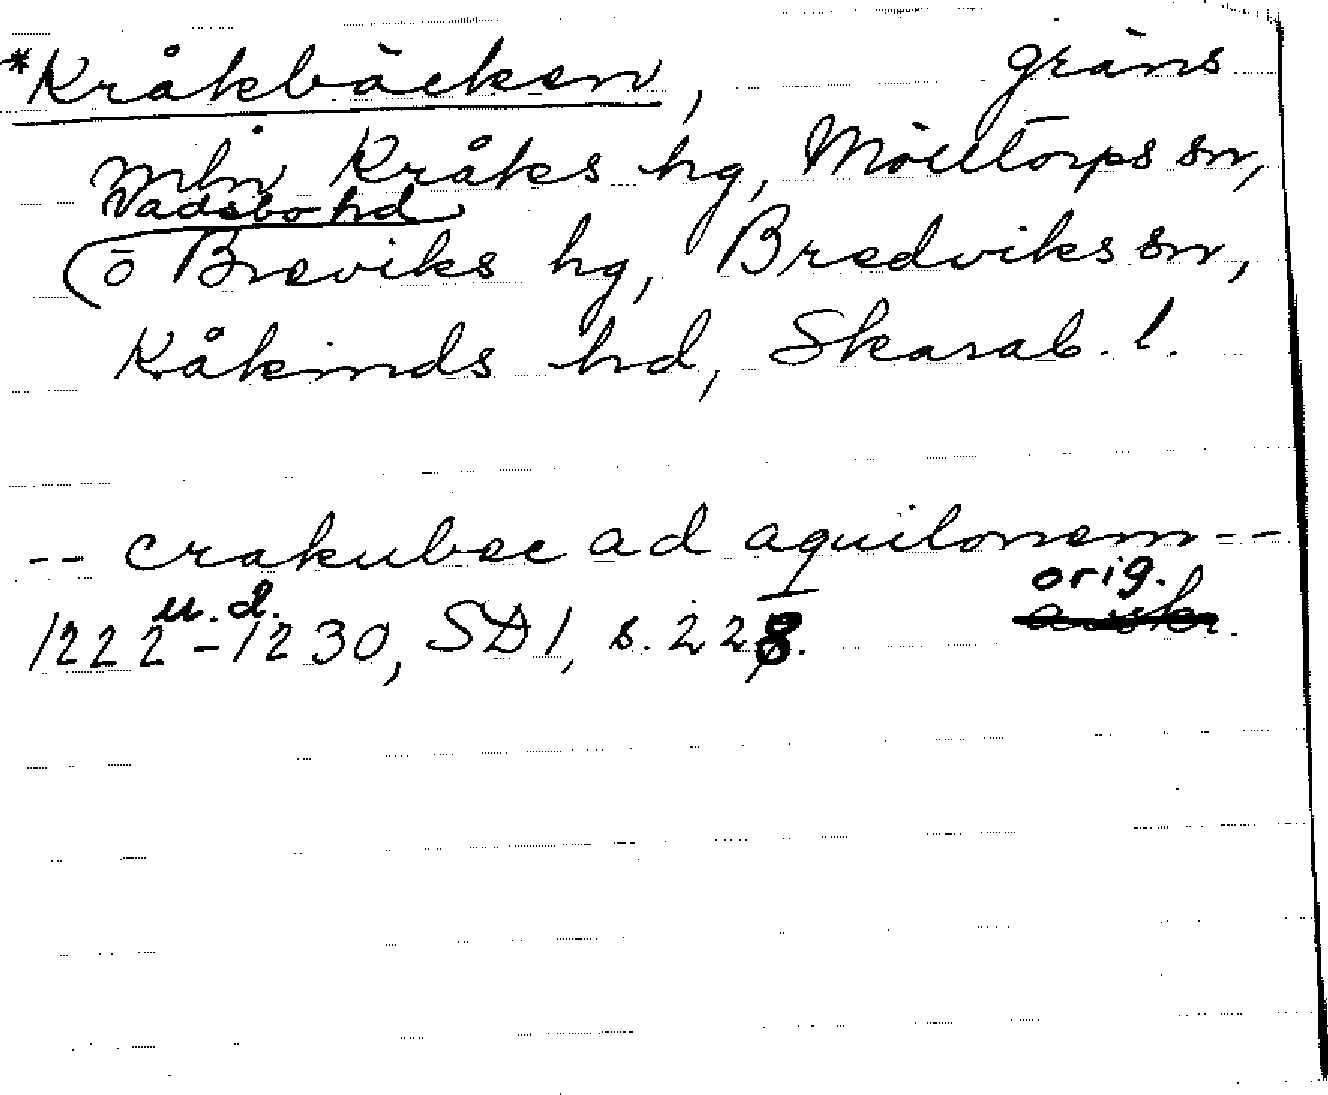 *Kråkbäcken, gräns
mln Kråks hg, Mölltorps sn,
Vadsbo hd
ō Breviks hg, Bredviks sn,
Kåkinds hd, Skarab. l.
-- crakubec ad aquilonem --
u.d. orig.
1222-1230, SD1, s. 228.